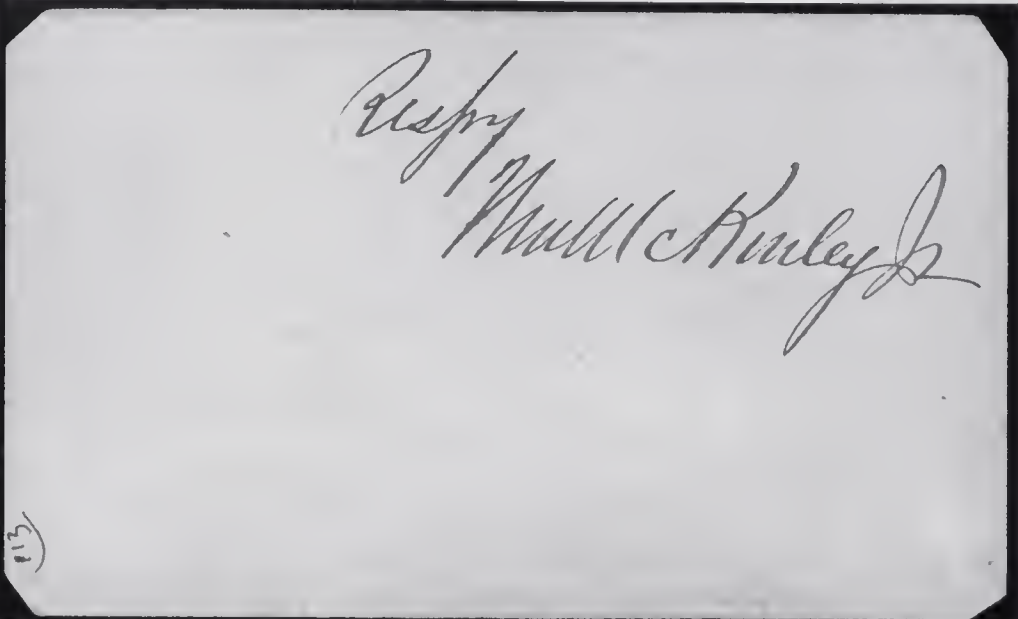 Respy
Wm McKinley Jr
113